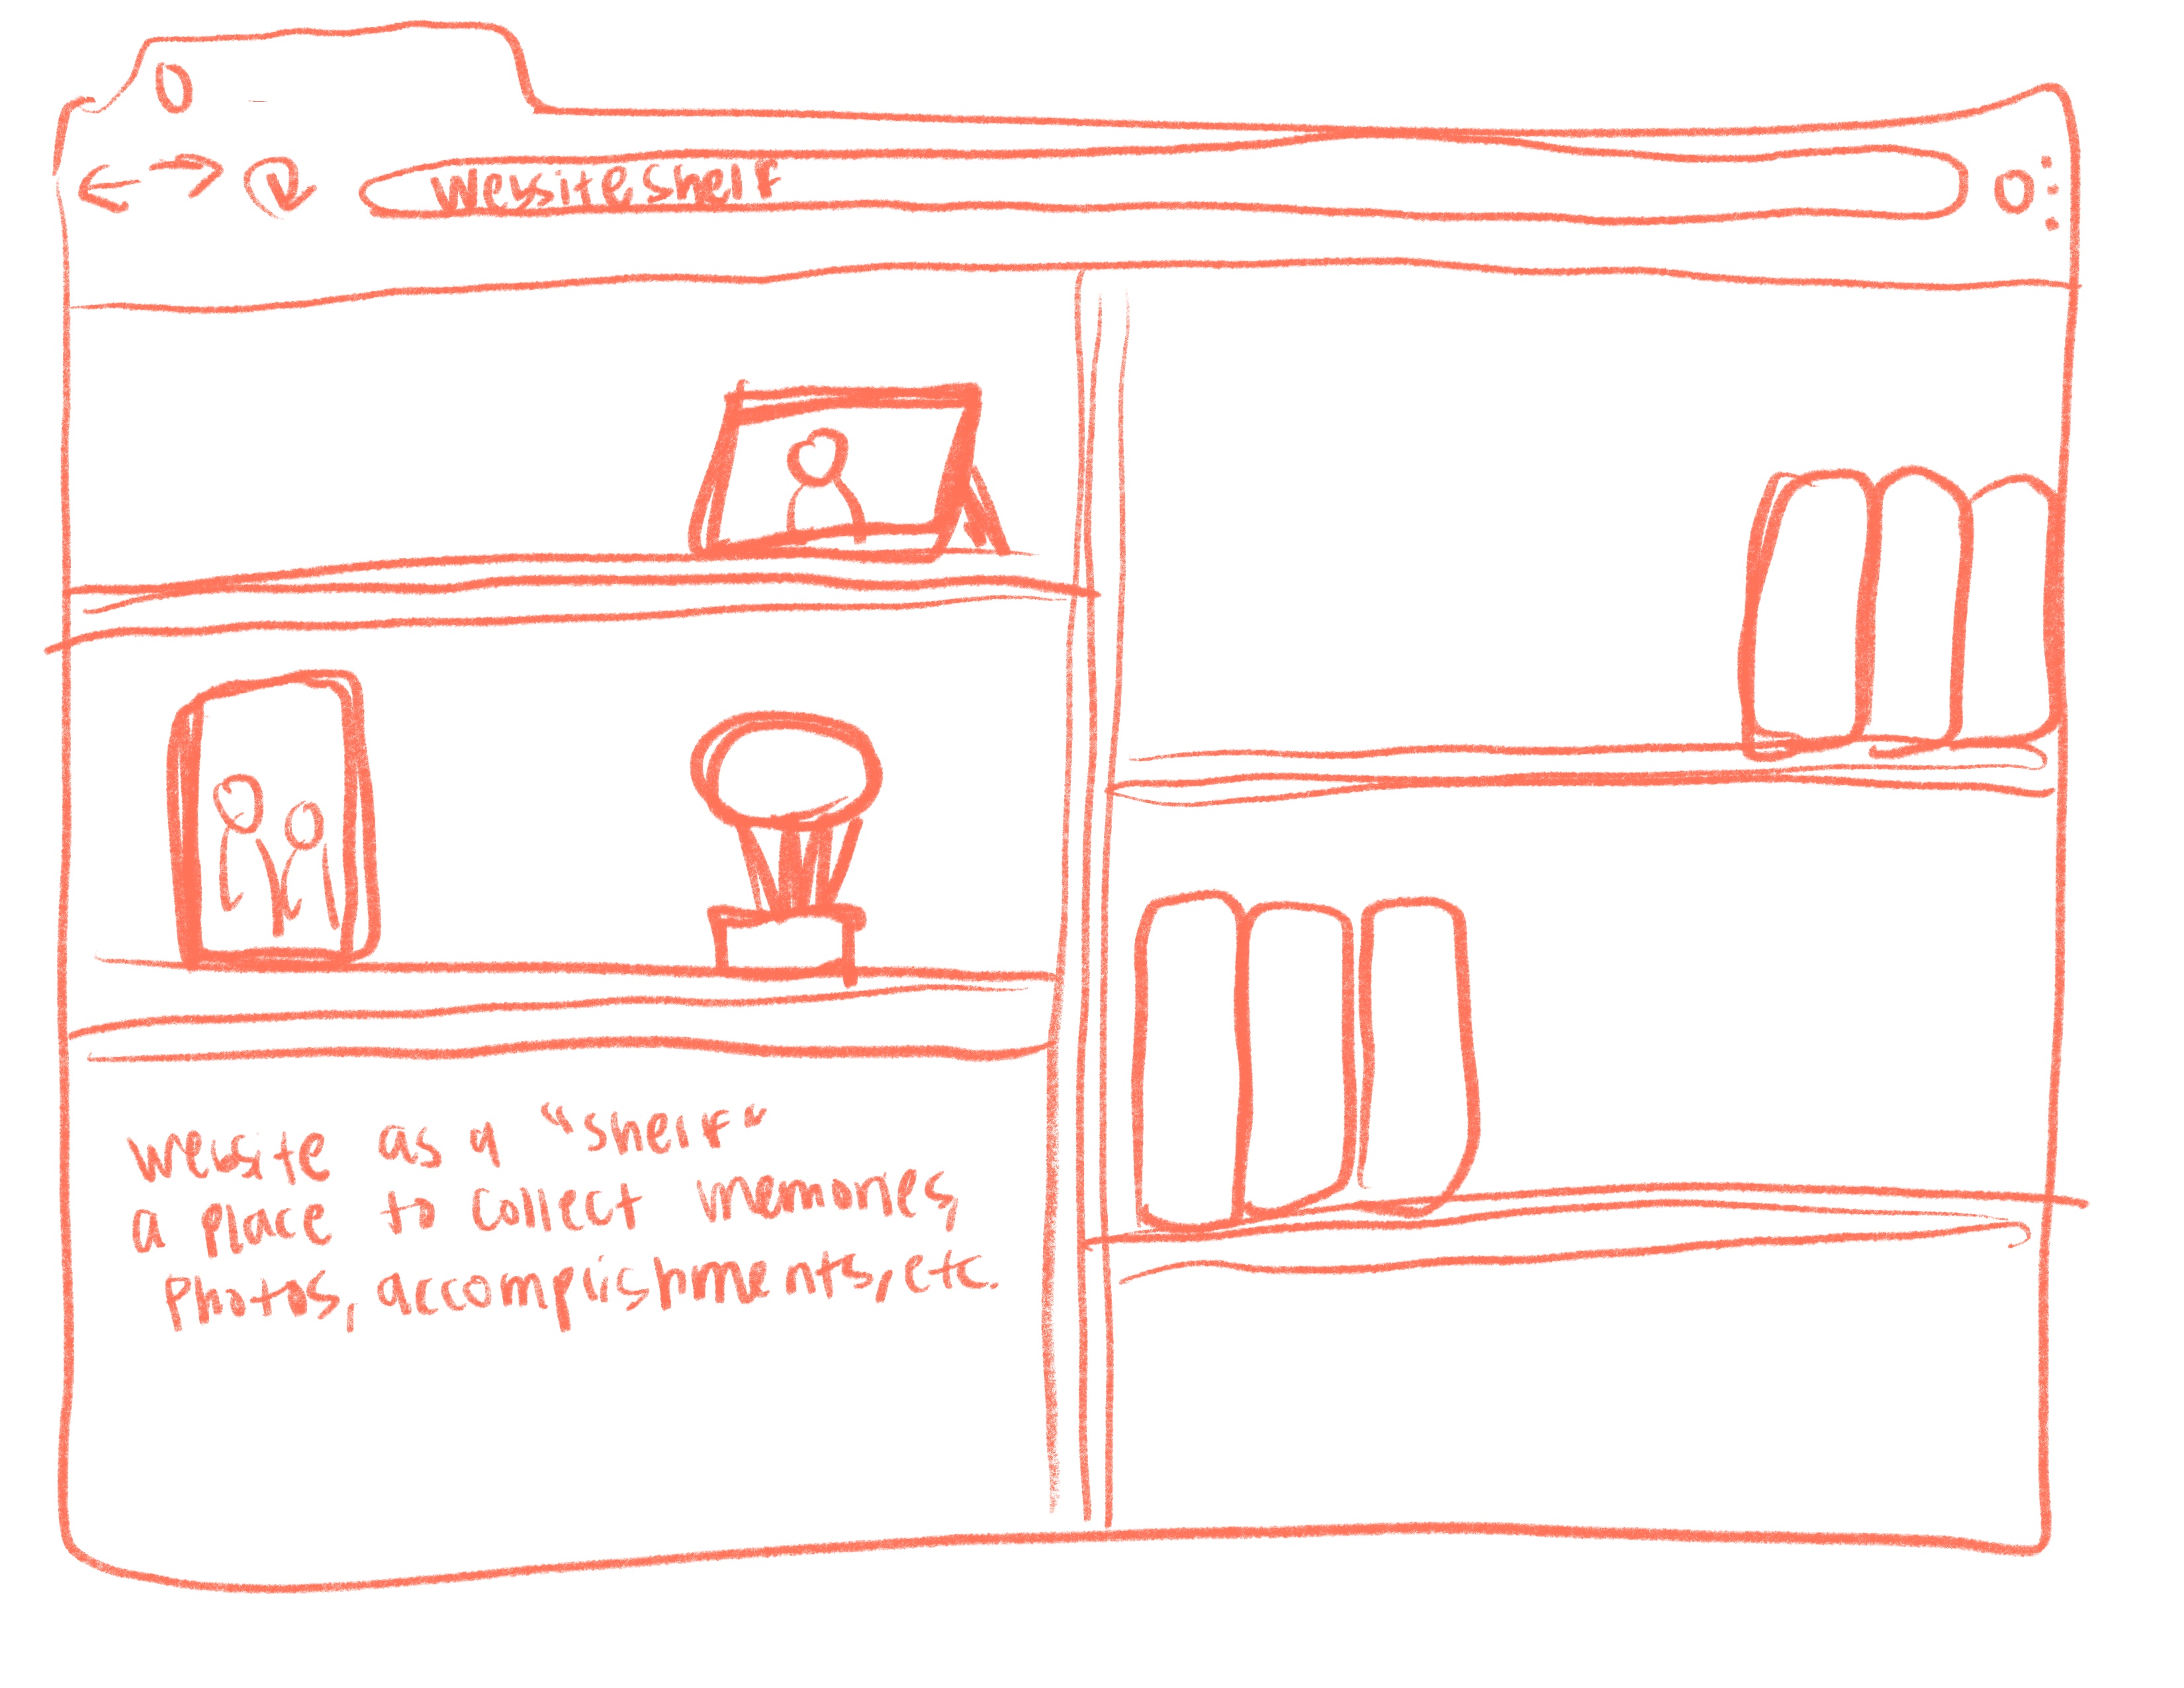 Website shelf
Website as a "shelf"
a place to collect memories,
photos, accomplishments, etc.